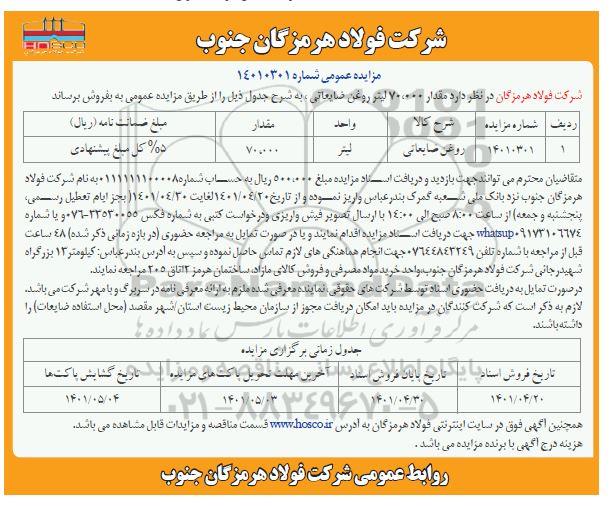 شرکت فولاد هرمزگان جنوب
HOSCO
مزایده عمومی شماره ۱۴۰۱۰۳۰۱
شرکت فولاد هرمزگان در نظر دارد مقدار ۷۰،۰۰۰ لیتر روغن ضایعاتی ، به شرح جدول ذیل را از طریق مزایده عمومی به بفروش برساند
ردیف شماره مزایده شرح کالا واحد مقدار مبلغ ضمانت نامه (ریال)
۱ ۱۴۰۱۰۳۰۱ روغن ضایعاتی لیتر ۷۰,۰۰۰ ۵% کل مبلغ پیشنهادی
متقاضیان محترم می توانند جهت بازدید و دریافت اسناد مزایده مبلغ ۵۰۰،۰۰۰ ریال به حساب شماره ۰۱۱۱۱۱۱۱۰۰۰۰۸ به نام شرکت فولاد
هرمزگان جنوب نزد بانک ملی شعبه گمرک بندرعباس واریز نموده و از تاریخ ۱۴۰۱/۰۴/۲۰ لغایت ۱۴۰۱/۰۴/۳۰ (بجز ایام تعطیل رسمی،
پنجشنبه و جمعه) از ساعت ۸:۰۰ صبح الی ۱۴:۰۰ با ارسال تصویر فیش واریزی ودرخواست کتبی به شماره فکس ۰۷۶-۳۳۵۳۰۰۵۵ و یا شماره
whatsup ۰۹۱۷۳۱۰۶۶۷۴ جهت دریافت اسناد مزایده اقدام نمایند و یا در صورت تمایل به مراجعه حضوری (در بازه زمانی ذکر شده) ۴۸ ساعت
قبل از مراجعه با شماره تلفن ۰۷۶۴۴۸۴۳۲۴۹ جهت انجام هماهنگی های لازم تماس حاصل نموده و سپس به آدرس بندرعباس: کیلومتر ۱۳ بزرگراه
شهید رجائی شرکت فولاد هرمزگان جنوب واحد خرید مواد مصرفی و فروش کالای مازاد، ساختمان هرمز ۲ اتاق ۲۰۵ مراجعه نمایند.
درصورت تمایل به دریافت حضوری اسناد توسط شرکت های حقوقی ، نماینده معرفی شده ملزم به ارائه معرفی نامه در سربرگ و با مهر شرکت می باشد.
لازم به ذکر است که شرکت کنندگان در مزایده باید امکان دریافت مجوز از سازمان محیط زیست استان/شهر مقصد (محل استفاده ضایعات) را
داشته باشند.
جدول زمانی برگزاری مزایده
تاریخ فروش اسناد تاریخ پایان فروش اسناد آخرین مهلت تحویل پاکت های مزایده تاریخ گشایش پاکت ها
۱۴۰۱/۰۴/۲۰ ۱۴۰۱/۰۴/۳۰ ۱۴۰۱/۰۵/۰۳ ۱۴۰۱/۰۵/۰۴
همچنین آگهی فوق در سایت اینترنتی فولاد هرمزگان به آدرس www.hosco.ir قسمت مناقصه و مزایدات قابل مشاهده می باشد.
هزینه درج آگهی با برنده مزایده می باشد .
پایگاه اطلاع رسانی مناقصه و مزایده
۰۲۱-۸۸۳۴۹۶۷۰-۵
روابط عمومی شرکت فولاد هرمزگان جنوب